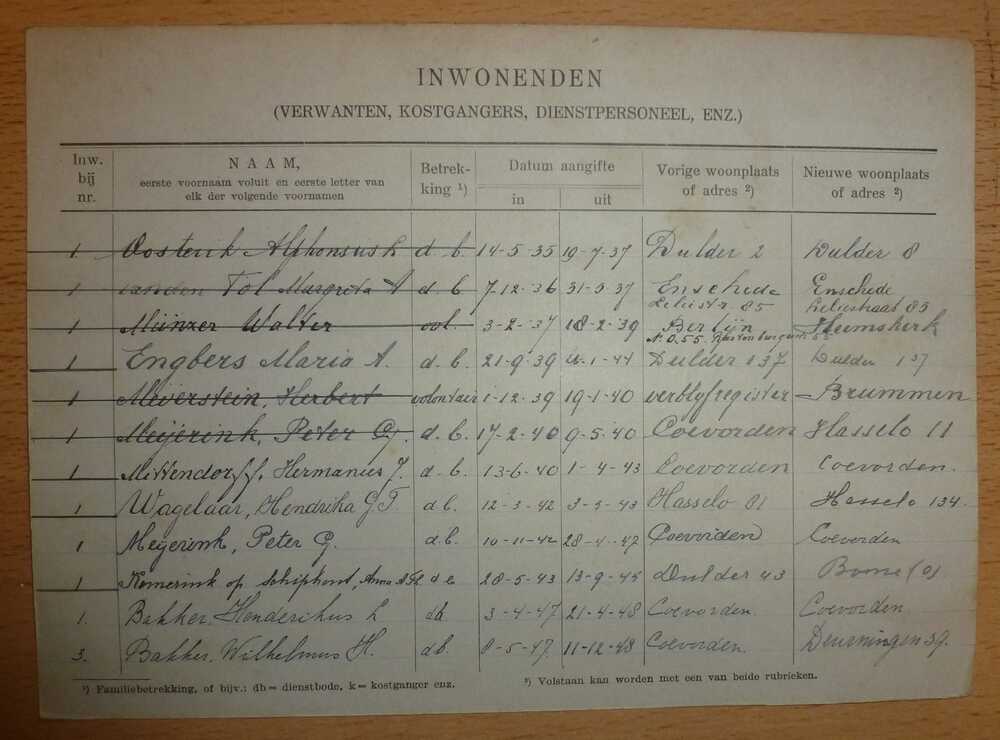 INWONENDEN
(VERWANTEN, KOSTGANGERS, DIENSTPERSONEEL, ENZ.)
Inw. bij nr. NAAM, eerste voornaam voluit en eerste letter van elk der volgende voornamen Betrekking ¹) Datum aangifte in uit Vorige woonplaats of adres ²) Nieuwe woonplaats of adres ²)
1 Oosterik Alphonsus h d. b. 14-5-35 19-7-37 Dulder 2 Dulder 8
1 van den Tol Margreta A d. b. 7-12-36 31-3-37 Enschede Enschede
Leliestr. 85 Leliestraat 85
1 Münzer Walter vol. 3-2-37 18-2-39 Berlijn Heemskerk
N.O.55
1 Engbers Maria A. d. b. 21-9-39 1-41 Dulder 137 Dulder 137
1 Meierstein, Herbert volontair 1-12-39 19-1-40 verblyfregister Brummen
1 Meijerink, Peter G. d. b. 17-2-40 9-5-40 Coevorden Hasselo 11
1 Mittendorff, Hermanus J. d. b. 13-6-40 1-4-43 Coevorden Coevorden.
1 Wagelaar, Hendrika G.T. d b. 12-3-42 3-3-43 Hasselo 81 Hasselo 134.
1 Meyerink, Peter G. d.b. 10-11-42 28-4-47 Coevorden Coevorden
1 Kamerink op Schiphorst, Anna 28-5-43 13-9-45 Dulder 43 Borne
1. Bakker, Henderikus L db 3-4-47 21-4-48 Coevorden. Coevorden
3. Bakker, Wilhelmus H. db. 9-5-47 11-12-48 Coevorden. Deurningen 39.
¹) Familiebetrekking, of bijv.: db = dienstbode, k = kostganger enz. ²) Volstaan kan worden met een van beide rubrieken.